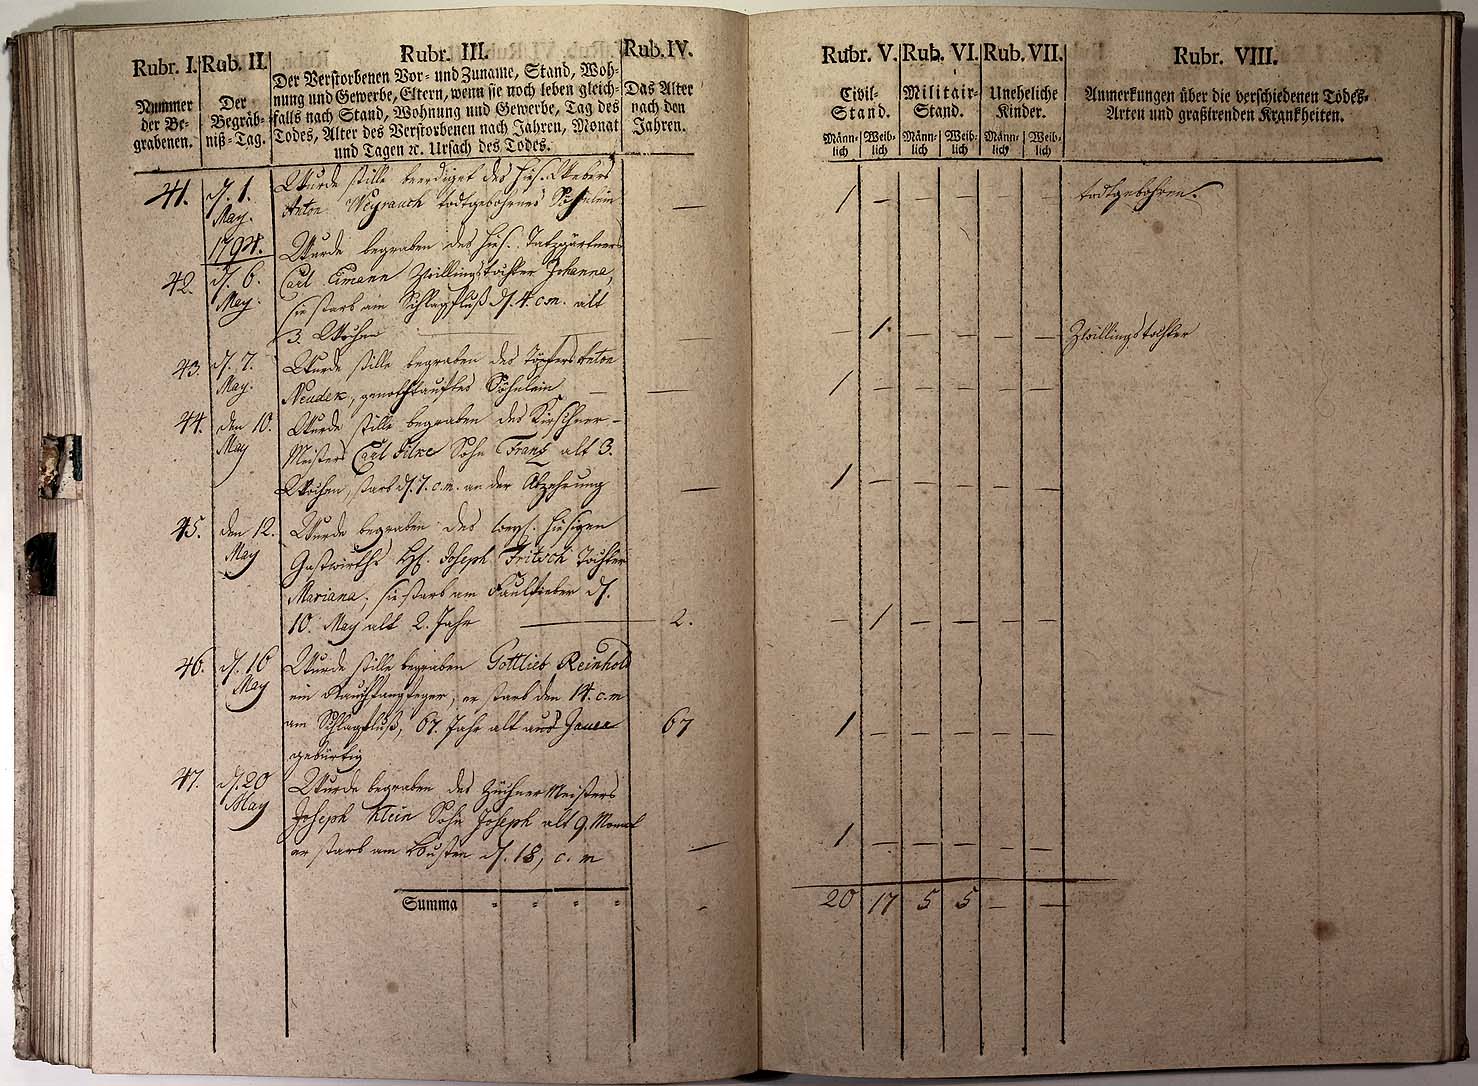 Rubr. I. Rub. II. Rubr. III. Rub. IV.
Nummer der Be-grabenen.
Der Begräb-niß-Tag.
Der Verstorbenen Vor- und Zuname, Stand, Woh-
nung und Gewerbe, Eltern, wenn sie noch leben gleich-
falls nach Stand, Wohnung und Gewerbe, Tag des
Todes, Alter des Verstorbenen nach Jahren, Monat
und Tagen ꝛc. Ursach des Todes.
Das Alter
nach den
Jahren.
41. d. 1. May. Wurde stille beerdiget des hies. Webers
Anton Weyrauch todtgebohrnes Söhnlein —
1794. Wurde begraben des hies.
42. d. 6. May. Carl Eimann Zwillingstochter Johanna,
sie starb am Schlagfluß d. 4. c. m. alt
3. Wochen —
43. d. 7. May. Wurde stille begraben des Töpfers Anton
Neudek, genothtauftes Söhnlein —
44. den 10. May Wurde stille begraben des Kirschner-
Meisters Carl Sohn Frantz alt 3.
Wochen, starb d. 7. c. m. an der Abzehrung —
45. den 12. May Wurde begraben des hiesigen
Gastwirths H. Joseph Fritsch Tochter
Mariana. sie starb am Faulfieber d.
10. May alt 2. Jahr — 2.
46. d. 16 May Wurde stille begraben Gottlieb Reinhold
ein Rauchfangfeger, er starb den 14. c. m
am Schlagfluß, 67. Jahr alt aus Jauer 67
gebürtig
47. d. 20 May Wurde begraben des Züchner Meisters
Joseph Klein Sohn Joseph alt 9. Monat
er starb am Husten d. 18, c. m —
Summa
Rubr. V. Rub. VI. Rub. VII. Rubr. VIII.
Civil-Stand. Militair-Stand. Uneheliche Kinder.
Anmerkungen über die verschiedenen Todes-
Arten und graßirenden Krankheiten.
Männ-lich Weib-lich Männ-lich Weib-lich Männ-lich Weib-lich
1 — — — — — todtgebohren.
— 1. — — — — Zwillingstochter
1 — — — — —
1 — — — — —
— 1 — — — —
1 — — — — —
1 — — — — —
20 17 5 5 — —